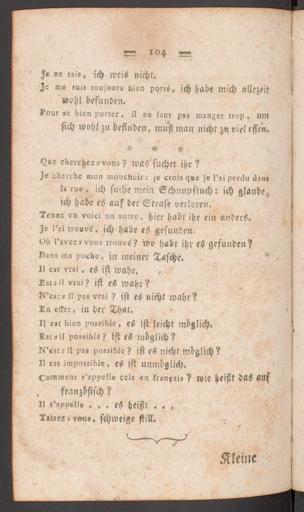 = 104 =
Je ne sais, ich weis nicht.
Je me suis toujours bien porté, ich habe mich allezeit
wohl befunden.
Pour se bien porter, il ne faut pas manger trop, um
sich wohl zu befinden, muß man nicht zu viel essen.
* * *
Que cherchez=vous? was suchet ihr?
Je cherche mon mouchoir: je crois que je l'ai perdu dans
la rue, ich suche mein Schnupftuch: ich glaube,
ich habe es auf der Strase verloren.
Tenez en voici un autre, hier habt ihr ein anders.
Je l'ai trouvé, ich habe es gefunden.
Où l'avez=vous trouvé? wo habt ihr es gefunden?
Dans ma poche, in meiner Tasche.
Il est vrai, es ist wahr.
Est=il vrai? ist es wahr?
N'est=il pas vrai? ist es nicht wahr?
En effet, in der That.
Il est bien possible, es ist leicht möglich.
Est=il possible? ist es möglich?
N'est=il pas possible? ist es nicht möglich?
Il est impossible, es ist unmöglich.
Comment s'appelle cela en français? wie heißt das auf
französisch?
Il s'appelle . . . es heißt . . .
Taisez=vous, schweige still.
Kleine